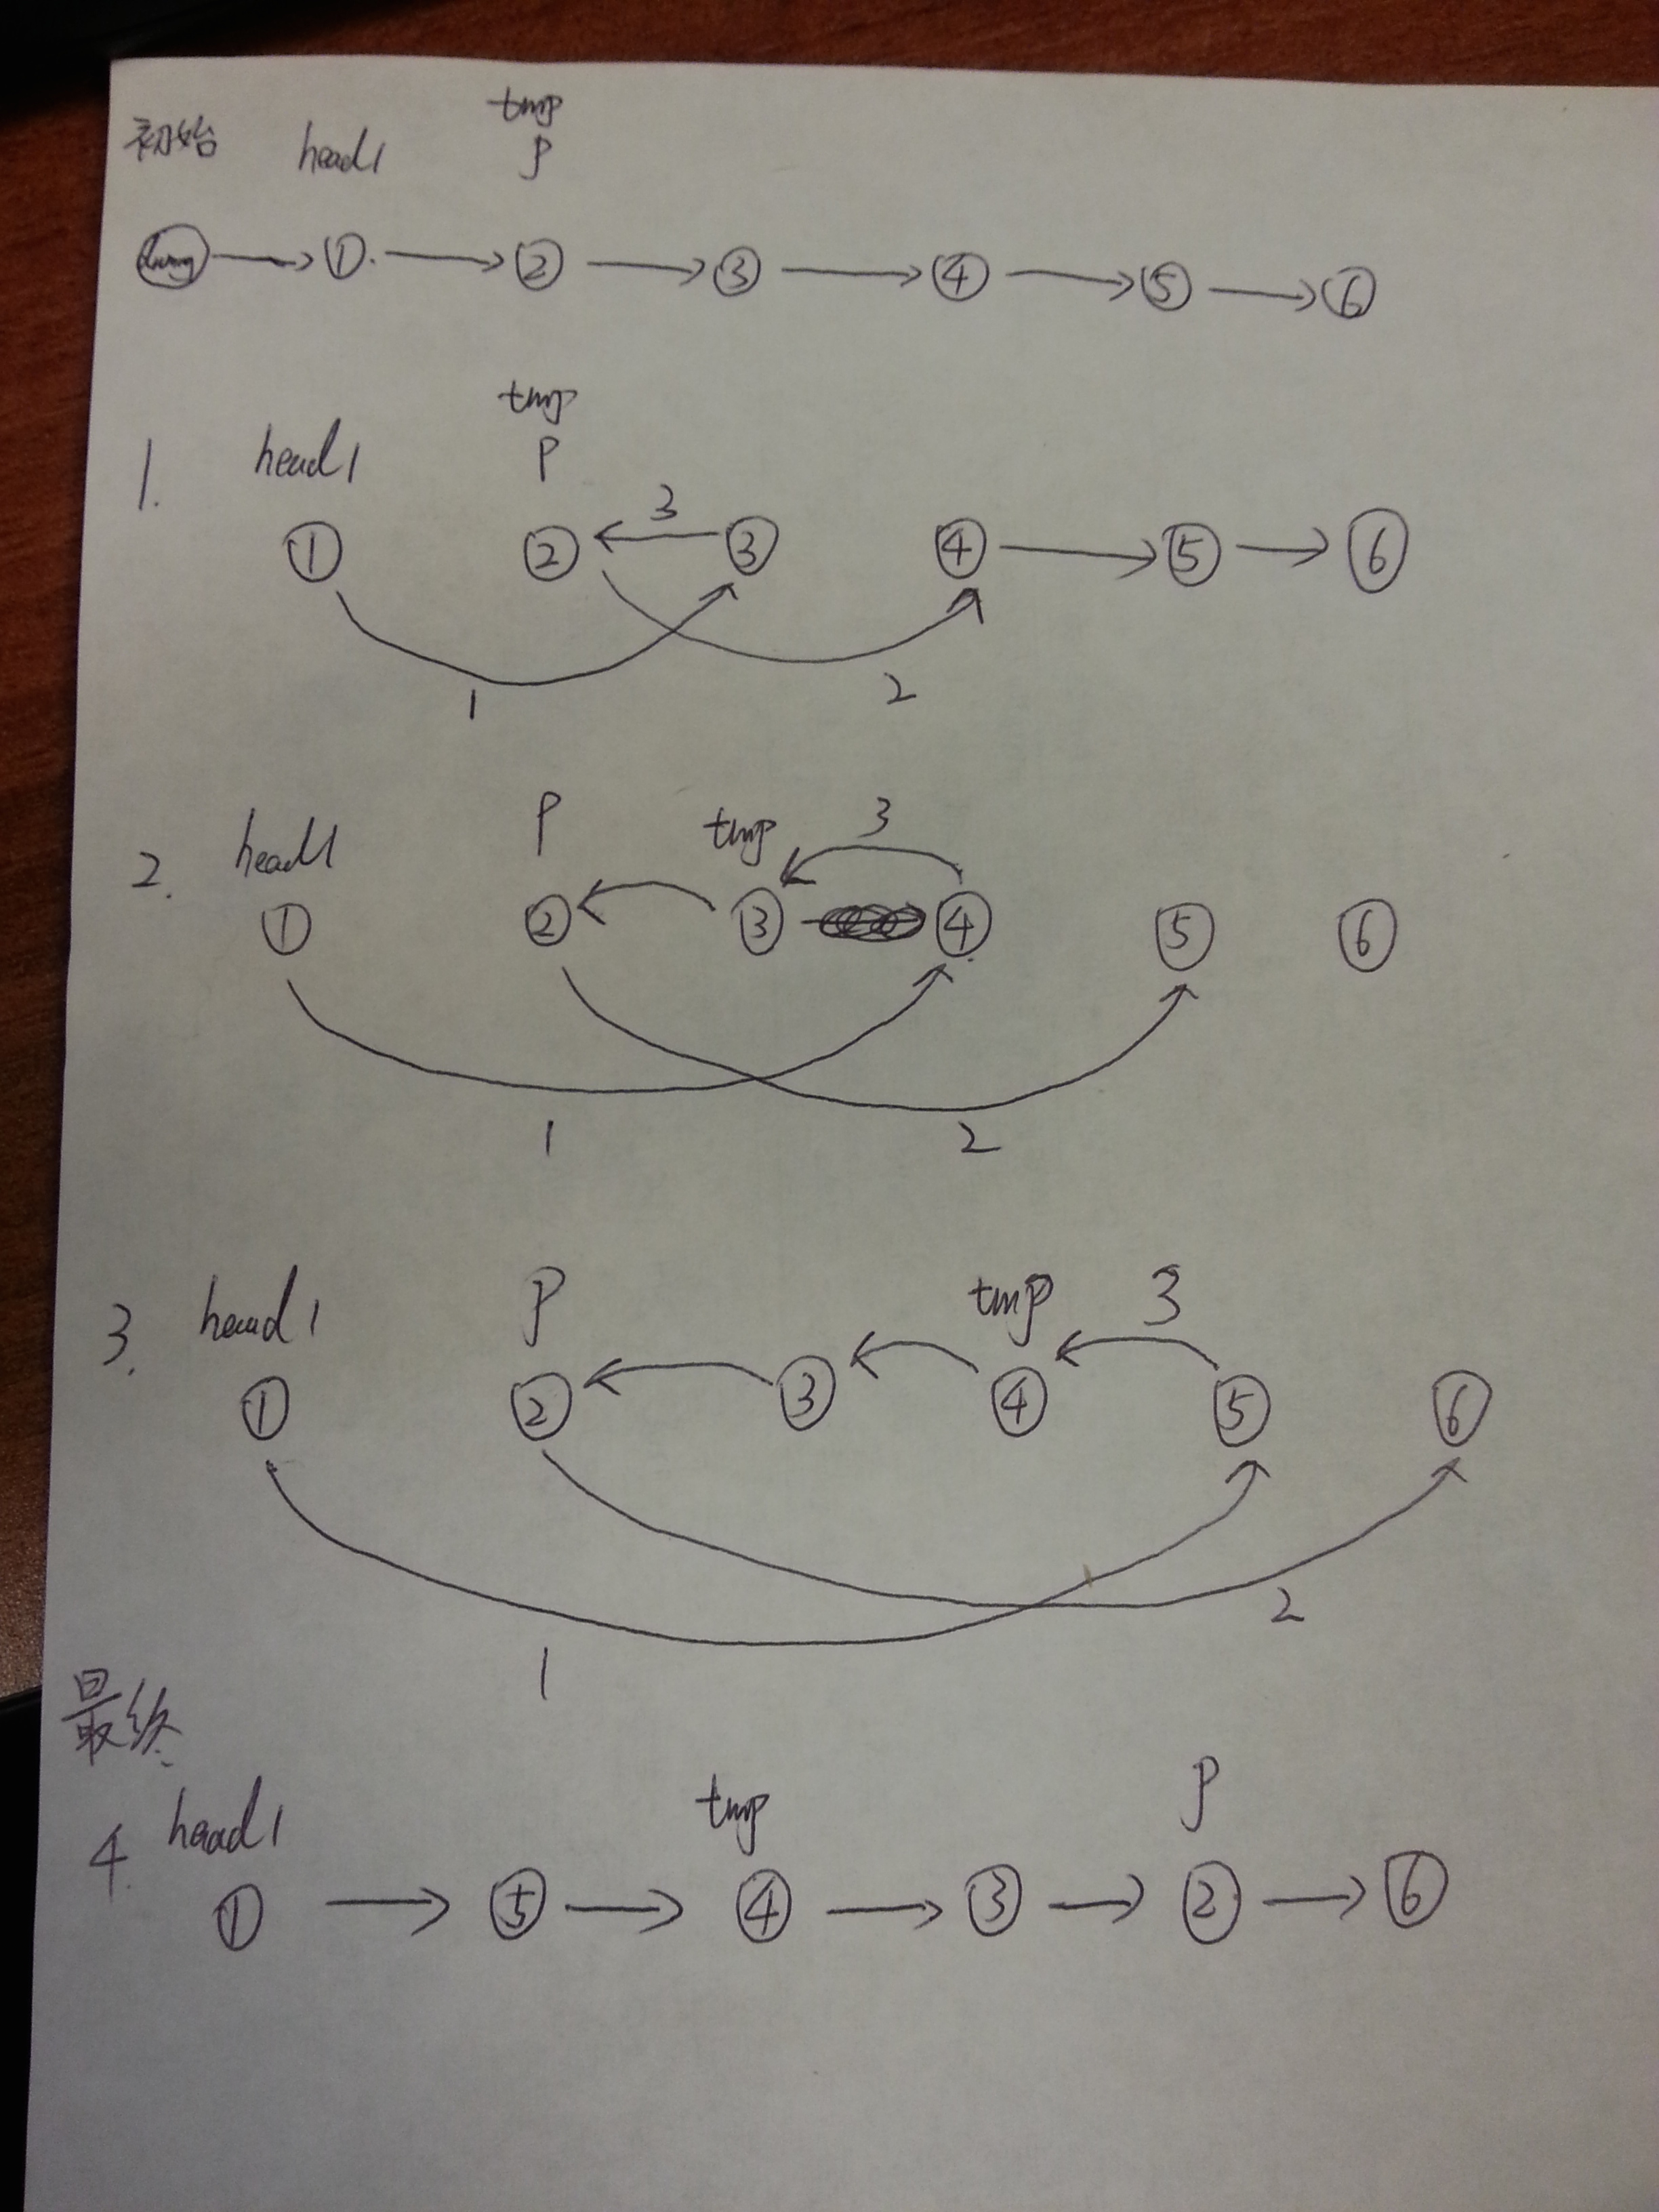 tmp
初始 head1 p
dummy ① ② ③ ④ ⑤ ⑥
tmp
1. head1 p
3
① ② ③ ④ ⑤ ⑥
1 2
2. head1 p tmp 3
① ② ③ ④ ⑤ ⑥
1 2
3. head1 p tmp 3
① ② ③ ④ ⑤ ⑥
2
1
最终
4. head1 tmp p
① ⑤ ④ ③ ② ⑥